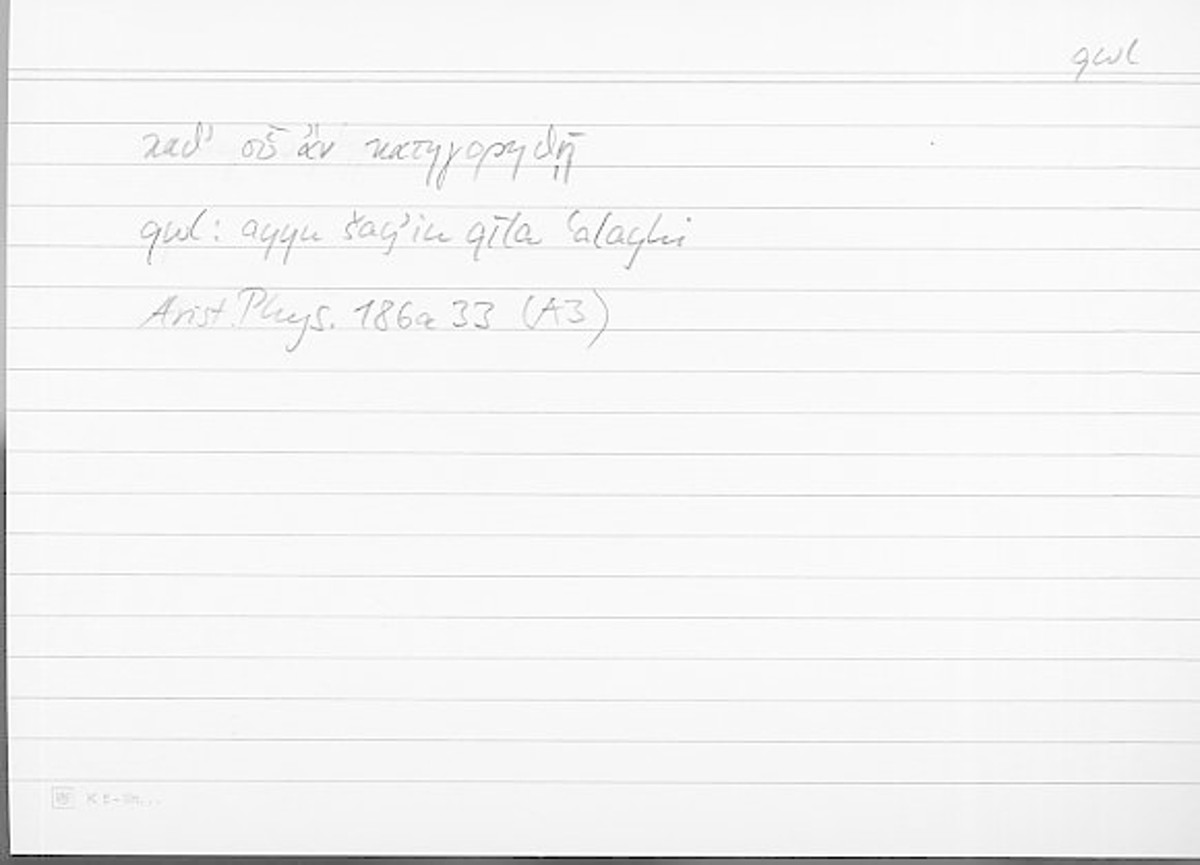 qwl
καθ' οὗ ἂν κατηγορηθῇ
qwl: ayyu šay'in qīla ʿalayhi
Arist. Phys. 186a 33 (A3)